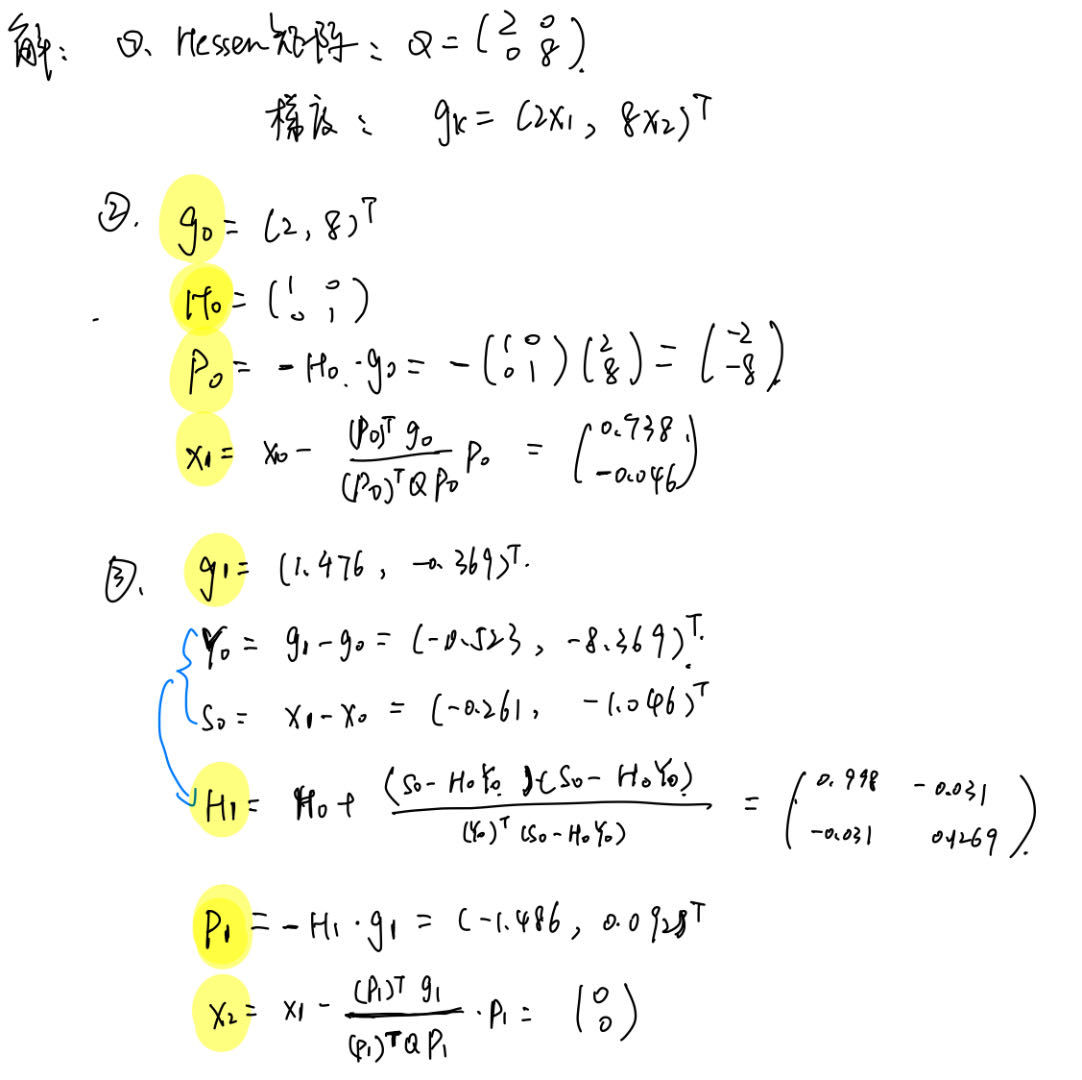 解: ①、Hessen矩阵: Q = (2 0 0 8).
梯度: gk = (2x1, 8x2)^T
②. g0 = (2, 8)^T
H0 = (1 0 0 1)
P0 = -H0·g0 = -(1 0 0 1)(2 8) = (-2 -8)
x1 = x0 - (P0)^T g0 / (P0)^T Q P0 P0 = (0.738 -0.046)
③. g1 = (1.476, -0.369)^T.
Y0 = g1-g0 = (-0.523, -8.369)^T.
S0 = x1-x0 = (-0.261, -1.046)^T
H1 = H0 + (S0-H0Y0)(S0-H0Y0) / (Y0)^T (S0-H0Y0) = (0.998 -0.031 -0.031 0.1269).
P1 = -H1·g1 = (-1.486, 0.0928)^T
x2 = x1 - (P1)^T g1 / (P1)^T Q P1 · P1 = (0 0)